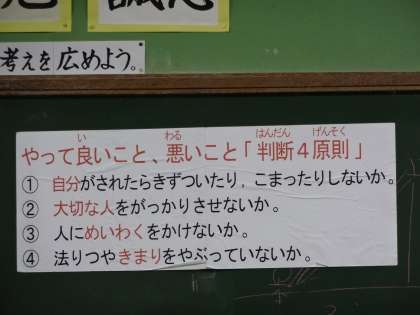 考えを広めよう。
やって良いこと、悪いこと「判断4原則」
① 自分がされたらきずついたり，こまったりしないか。
② 大切な人をがっかりさせないか。
③ 人にめいわくをかけないか。
④ 法りつやきまりをやぶっていないか。